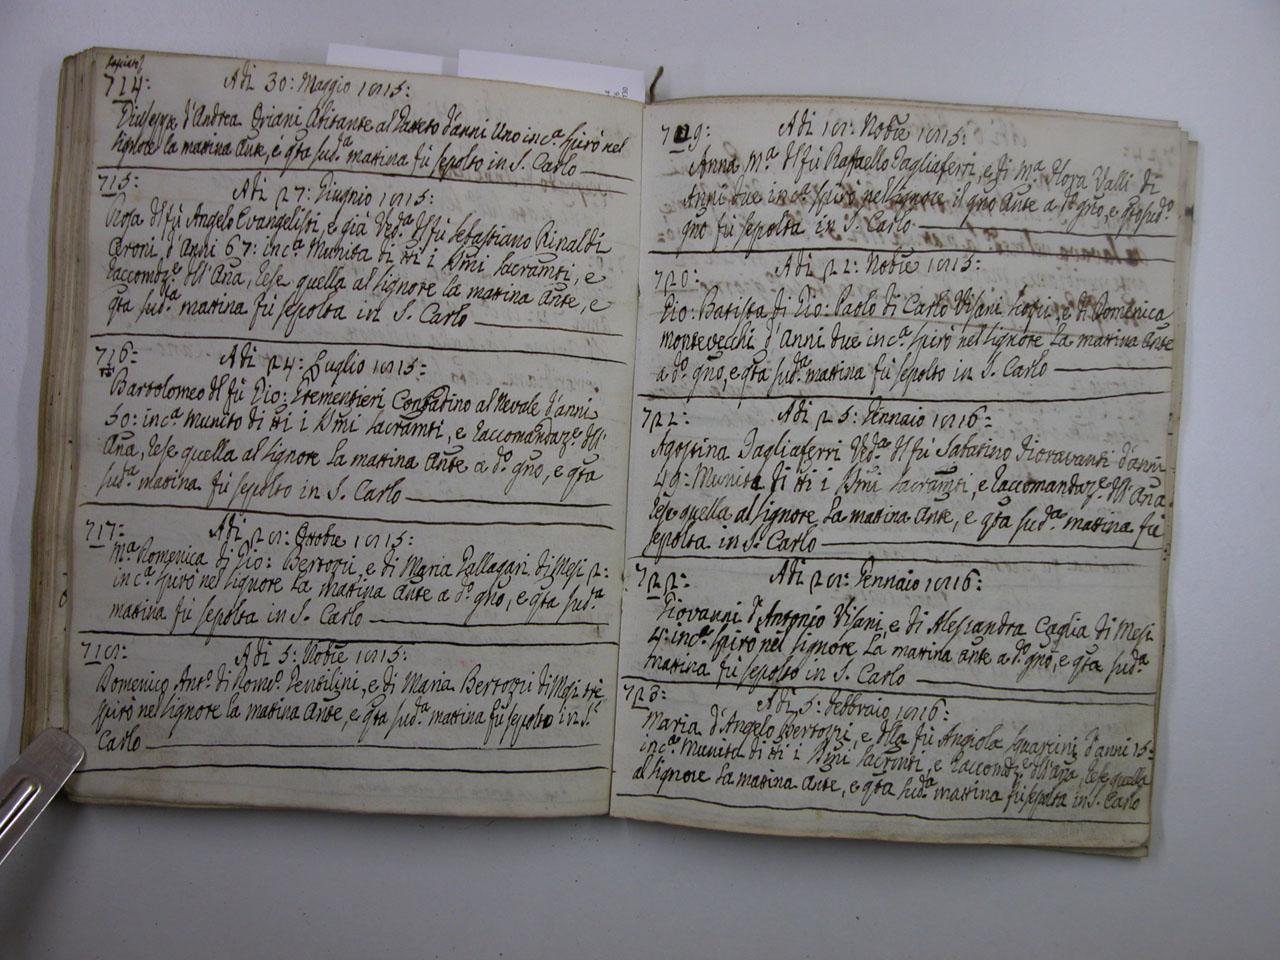 714:
Adi 30: Maggio 1815:
Giuseppe d'Andrea Oriani Abitante al d'anni Uno in c.ª spirò nel
Signore la mattina ante, è qta sud.ª mattina fù sepolto in S. Carlo
715:
Adi 27: Giugnio 1815:
Rosa del fù Angelo Evangelisti, e già Ved.ª del fù Sebastiano Rinaldi
Ceroni, d'Anni 67: inc.ª Munita di tti i Smi Sacramti, e
Raccomdz.e dell'Aña, Rese quella al Signore la mattina Ante, e
qta sud.ª mattina fù sepolta in S. Carlo
716:
Adi 24: Luglio 1815:
Bartolomeo del fù Gio: Contadino al Nevale d'anni
50: inc.ª Munito di tti i Smi Sacramti, e Raccomandaz.e dell'
Aña, Rese quella al Signore la mattina Ante a d.º gno, e qta
sud.ª mattina fù sepolto in S. Carlo
717:
Adi 28: Ottobre 1815:
M.ª Domenica di Gio: Bertozzi, e di Maria Gallagari di Mesi 2:
in c.ª spirò nel Signore la mattina Ante a d.º gno, e qta sud.ª
mattina fù sepolta in S. Carlo
718:
Adi 5: Nobre 1815:
Domenico Ant.º di Dom.º Gentilini, e di Maria Bertozzi di Mesi tre
spirò nel Signore la mattina Ante, e qta sud.ª mattina fù sepolto in S.
Carlo
719:
Adi 18: Nobre 1815:
Anna M.ª del fù Raffaello Tagliaferri, e di M.ª Rosa Valli di
Anni due in c.ª spirò nel Signore il gno Ante a d.º gno, e qto sud.º
gno fù sepolta in S. Carlo
720:
Adi 22: Nobre 1815:
Gio: Batista di Gio: Paolo di Carlo Visani e di Domenica
Montevecchi d'Anni due in c.ª spirò nel Signore la mattina Ante
a d.º gno, e qta sud.ª mattina fù sepolto in S. Carlo
722:
Adi 25: Gennaio 1816:
Agostina Tagliaferri Ved.ª del fù Sabatino Fioravanti d'anni
49: Munita di tti i Smi Sacramti, e Raccomandaz.e dell'Aña
Rese quella al Signore la mattina Ante, e qta sud.ª mattina fù
sepolta in S. Carlo
722:
Adi 28: Gennaio 1816:
Giovanni d'Antonio Visani, e di Alessandra Caglia di Mesi
4: in c.ª spirò nel Signore la mattina ante a d.º gno, e qta sud.ª
mattina fù sepolto in S. Carlo
723:
Adi 5: Febbraio 1816:
Maria d'Angelo Bertozzi, e della fù Angiola Squarcini d'anni 15:
in c.ª Munita di tti i Smi Sacramti, e Raccomdz.e dell'Aña, Rese quella
al Signore la mattina Ante, e qta sud.ª mattina fù sepolta in S. Carlo